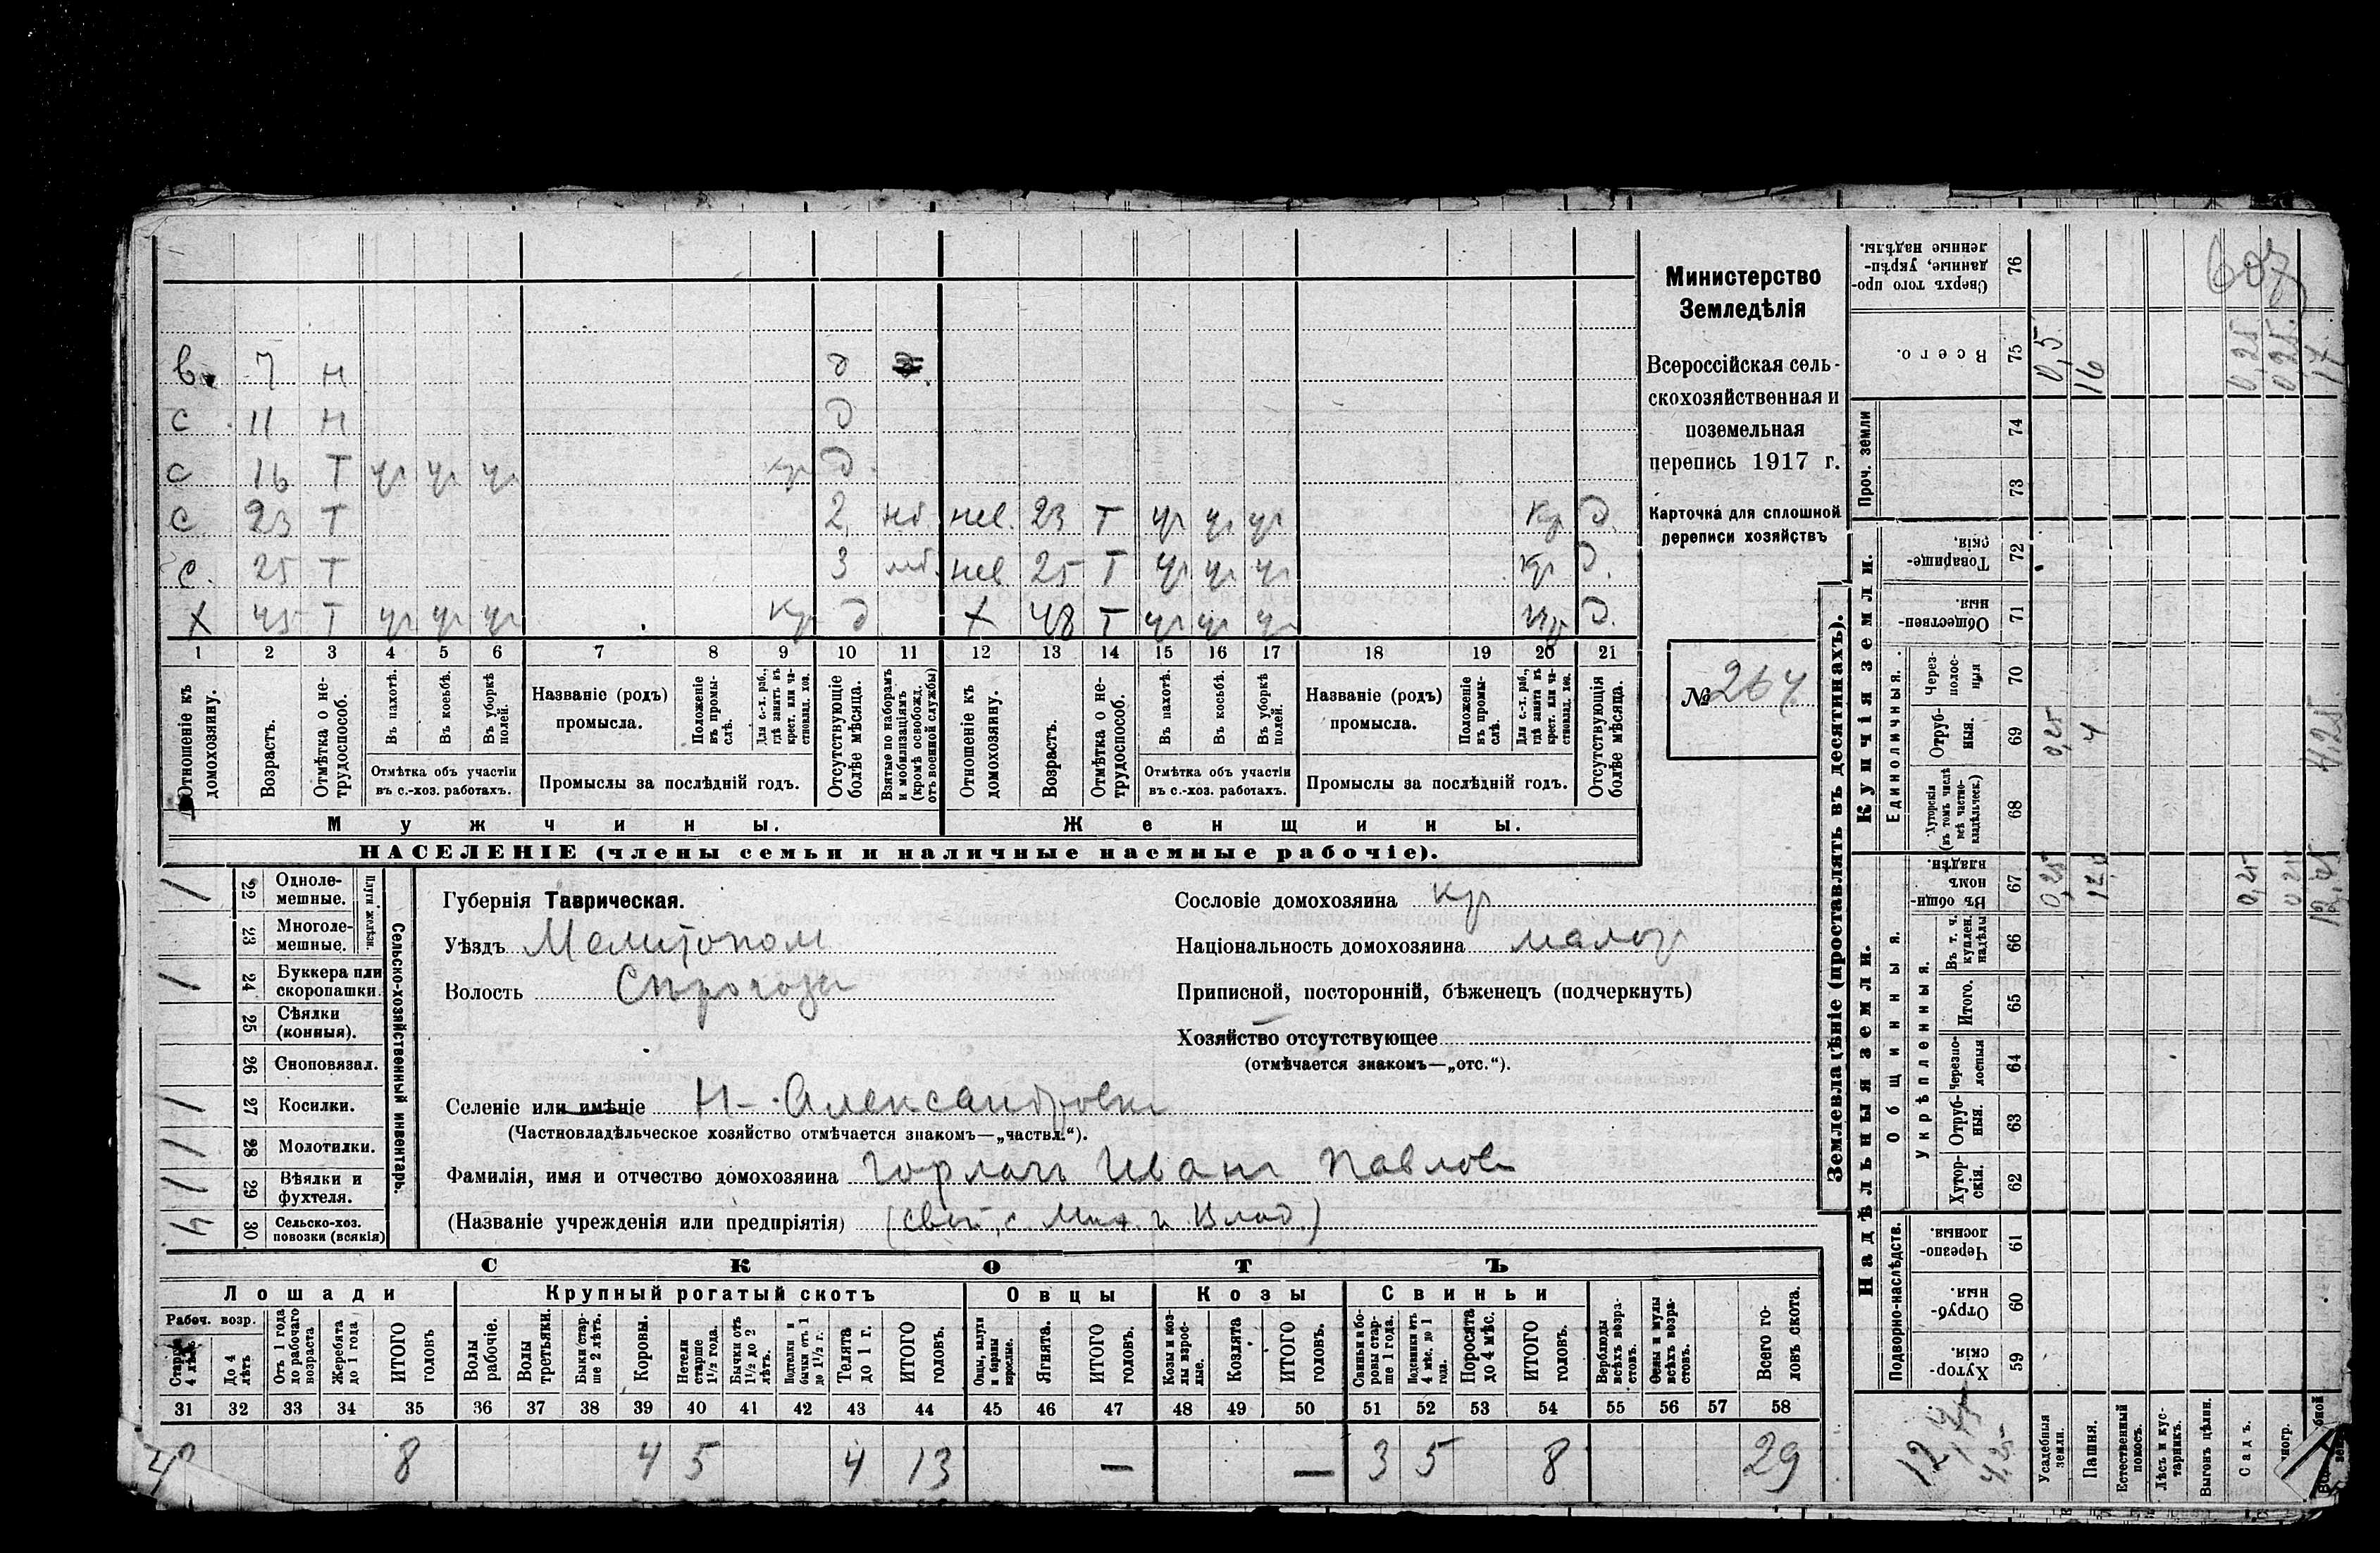 Министерство
Земледѣлія
Всероссійская сель-
скохозяйственная и
поземельная
перепись 1917 г.
Карточка для сплошной
переписи хозяйствъ
№ 264
7 н д
с 11 н д
с 16 т ур ур ур кр д
с 23 т 2 нб. нев. 23 т ур ур ур кр д.
с. 25 т 3 нб. нев 25 т ур ур ур кр д.
х 45 т ур ур ур кр д х 48 т ур ур ур кр д.
1 2 3 4 5 6 7 8 9 10 11 12 13 14 15 16 17 18 19 20 21
Отношеніе къ домохозяину.
Возрастъ.
Отмѣтка о не-трудоспособ.
Въ пахотѣ.
Въ косьбѣ.
Въ уборкѣ полей.
Отмѣтка объ участіи въ с.-хоз. работахъ.
Названіе (родъ) промысла.
Положеніе въ промы-слѣ.
Для с.-х. раб., гдѣ занятъ въ крест. или ча-стновлад. хоз.
Промыслы за послѣдній годъ.
Отсутствующіе болѣе мѣсяца.
Взятые по наборамъ и мобилизаціямъ (кромѣ освобожд. отъ военной службы)
Отношеніе къ домохозяину.
Возрастъ.
Отмѣтка о не-трудоспособ.
Въ пахотѣ.
Въ косьбѣ.
Въ уборкѣ полей.
Отмѣтка объ участіи въ с.-хоз. работахъ.
Названіе (родъ) промысла.
Положеніе въ промы-слѣ.
Для с.-х. раб., гдѣ занятъ въ крест. или ча-стновлад. хоз.
Промыслы за послѣдній годъ.
Отсутствующія болѣе мѣсяца.
Мужчины. Женщины.
НАСЕЛЕНІЕ (члены семьи и наличные наемные рабочіе).
Сельско-хозяйственный инвентарь.
Плуги желѣзн.
/ 22 Одноле-мешные.
23 Многоле-мешные.
/ 24 Буккера или скоропашки.
25 Сѣялки (конныя).
26 Сноповязал.
/ 27 Косилки.
/ 28 Молотилки.
/ 29 Вѣялки и фухтеля.
4 30 Сельско-хоз. повозки (всякія)
Губернія Таврическая.
Уѣздъ Мелитопол
Волость Сѣрогозы
Селеніе или имѣніе Н-Александровка
(Частновладѣльческое хозяйство отмѣчается знакомъ—„частвл.“).
Фамилія, имя и отчество домохозяина Горлачъ Иванъ Павлов
(Названіе учрежденія или предпріятія) (свой, с Мих и Влад.)
Сословіе домохозяина кр
Національность домохозяина малор
Приписной, посторонній, бѣженецъ (подчеркнуть)
Хозяйство отсутствующее
(отмѣчается знакомъ—„отс.“).
СКОТЪ
Лошади Крупный рогатый скотъ Овцы Козы Свиньи
Рабоч. возр.
Старше 4 лѣтъ
До 4 лѣтъ
Отъ 1 года до рабочаго возраста
Жеребята до 1 года
ИТОГО головъ
Волы рабочіе.
Волы третьяки.
Быки стар-ше 2 лѣтъ.
Коровы.
Нетели старше 1½ года.
Бычки отъ 1½ до 2 лѣтъ.
Подтелки и бычки отъ 1 до 1½ г.
Телята до 1 г.
ИТОГО головъ.
Овцы, валухи и бараны взрослые.
Ягнята.
ИТОГО головъ.
Козы и коз-лы взрос-лые.
Козлята
ИТОГО головъ.
Свиньи и бо-ровы стар-ше 1 года.
Подсвинки отъ 4 мѣс. до 1 года.
Поросята до 4 мѣс.
ИТОГО головъ.
Верблюды всѣхъ возра-стовъ.
Ослы и мулы всѣхъ возра-стовъ.
Всего го-ловъ скота.
31 32 33 34 35 36 37 38 39 40 41 42 43 44 45 46 47 48 49 50 51 52 53 54 55 56 57 58
8 4 5 4 13 — — 3 5 8 29
Землевладѣніе (проставлять въ десятинахъ).
Надѣльныя земли. Купчія земли. Проч. земли
Подворно-наслѣдств.
Общинныя.
Укрѣпленныя.
Единоличныя.
Хутор-скія. 59
Отруб-ныя. 60
Черезпо-лосныя. 61
Хутор-скія. 62
Отруб-ныя. 63
Черезпо-лосныя 64
Итого. 65
Въ т. ч. куплен. надѣлы 66
Въ общин-номъ владѣн. 67
Хуторскія (въ томъ числѣ всѣ частно-владѣльческ.) 68
Отруб-ныя. 69
Через-полос-ныя 70
Обществен-ныя. 71
Товарище-скія. 72
73
74
Всего. 75
Сверхъ того про-данные, укрѣп-ленные надѣлы. 76
Усадебныя земли. 0,25 0,25 0,5
Пашня. 12,0 4 16
Естественный покосъ.
Лѣсъ и кус-тарникъ.
Выгонъ цѣлин.
Садъ. 0,25 0,25
0,25 0,25
4,25 17
607